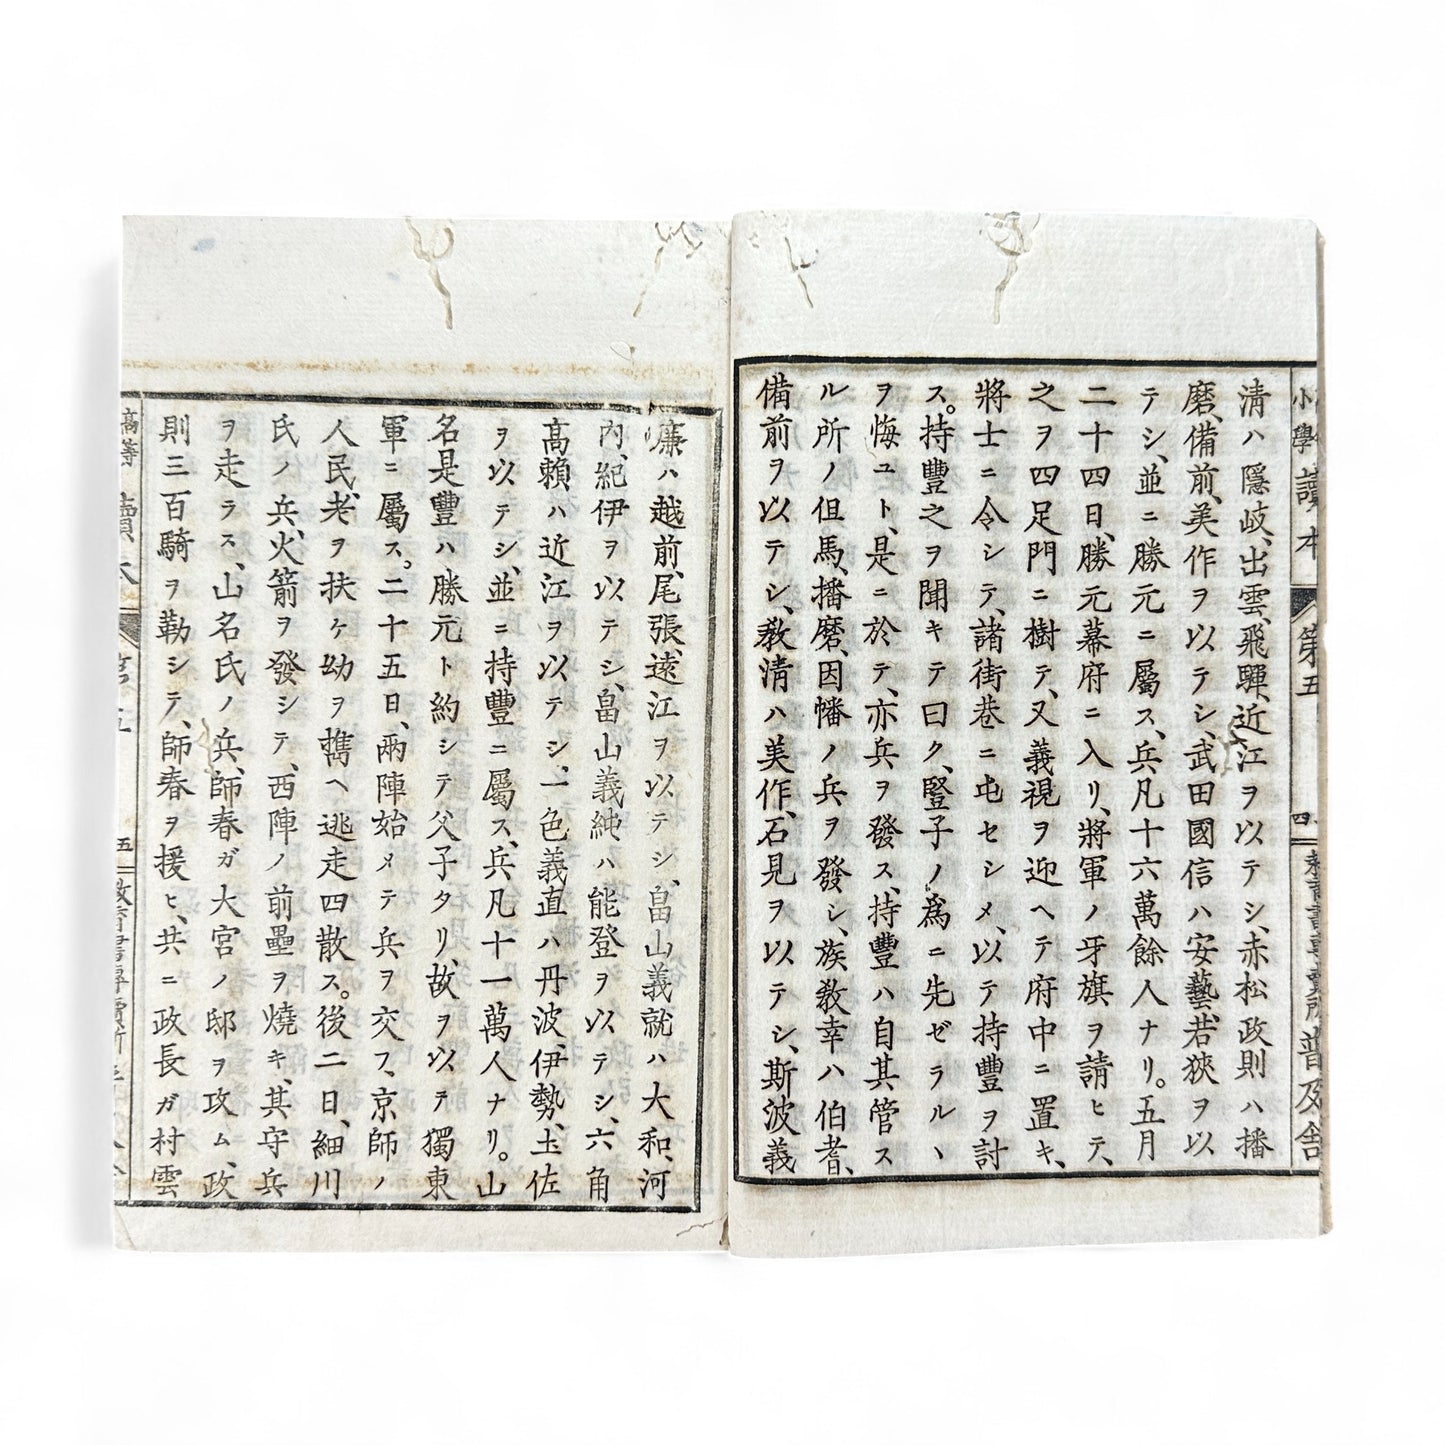 小學讀本
第五
四
普及舍
清ハ隱岐、出雲、飛驒、近江ヲ以テシ、赤松政則ハ播
磨、備前、美作ヲ以テシ、武田國信ハ安藝、若狹ヲ以
テシ、並ニ勝元ニ屬ス、兵凡十六萬餘人ナリ。五月
二十四日、勝元幕府ニ入リ、將軍ノ牙旗ヲ請ヒテ、
之ヲ四足門ニ樹テ、又義視ヲ迎ヘテ府中ニ置キ、
將士ニ令シテ、諸街巷ニ屯セシメ、以テ持豐ヲ討
ス。持豐之ヲ聞キテ曰ク、豎子ノ爲ニ先ゼラルヽ
ヲ悔ユト、是ニ於テ、亦兵ヲ發ス、持豐ハ自其管ス
ル所ノ但馬、播磨、因幡ノ兵ヲ發シ、族敎幸ハ伯耆、
備前ヲ以テシ、敎淸ハ美作、石見ヲ以テシ、斯波義
廉ハ越前、尾張、遠江ヲ以テシ、畠山義就ハ大和、河
內、紀伊ヲ以テシ、畠山義純ハ能登ヲ以テシ、六角
高賴ハ近江ヲ以テシ、一色義直ハ丹波、伊勢、土佐
ヲ以テシ、並ニ持豐ニ屬ス、兵凡十一萬人ナリ。山
名是豐ハ勝元ト約シテ父子タリ、故ヲ以テ獨東
軍ニ屬ス。二十五日、兩陣始メテ兵ヲ交フ、京師ノ
人民、老ヲ扶ケ幼ヲ携ヘ逃走四散ス。後二日、細川
氏ノ兵、火箭ヲ發シテ、西陣ノ前壘ヲ燒キ、其守兵
ヲ走ラス、山名氏ノ兵、師春ガ大宮ノ邸ヲ攻ム、政
則三百騎ヲ勒シテ、師春ヲ援ヒ、共ニ政長ガ村雲
高等
讀本
五